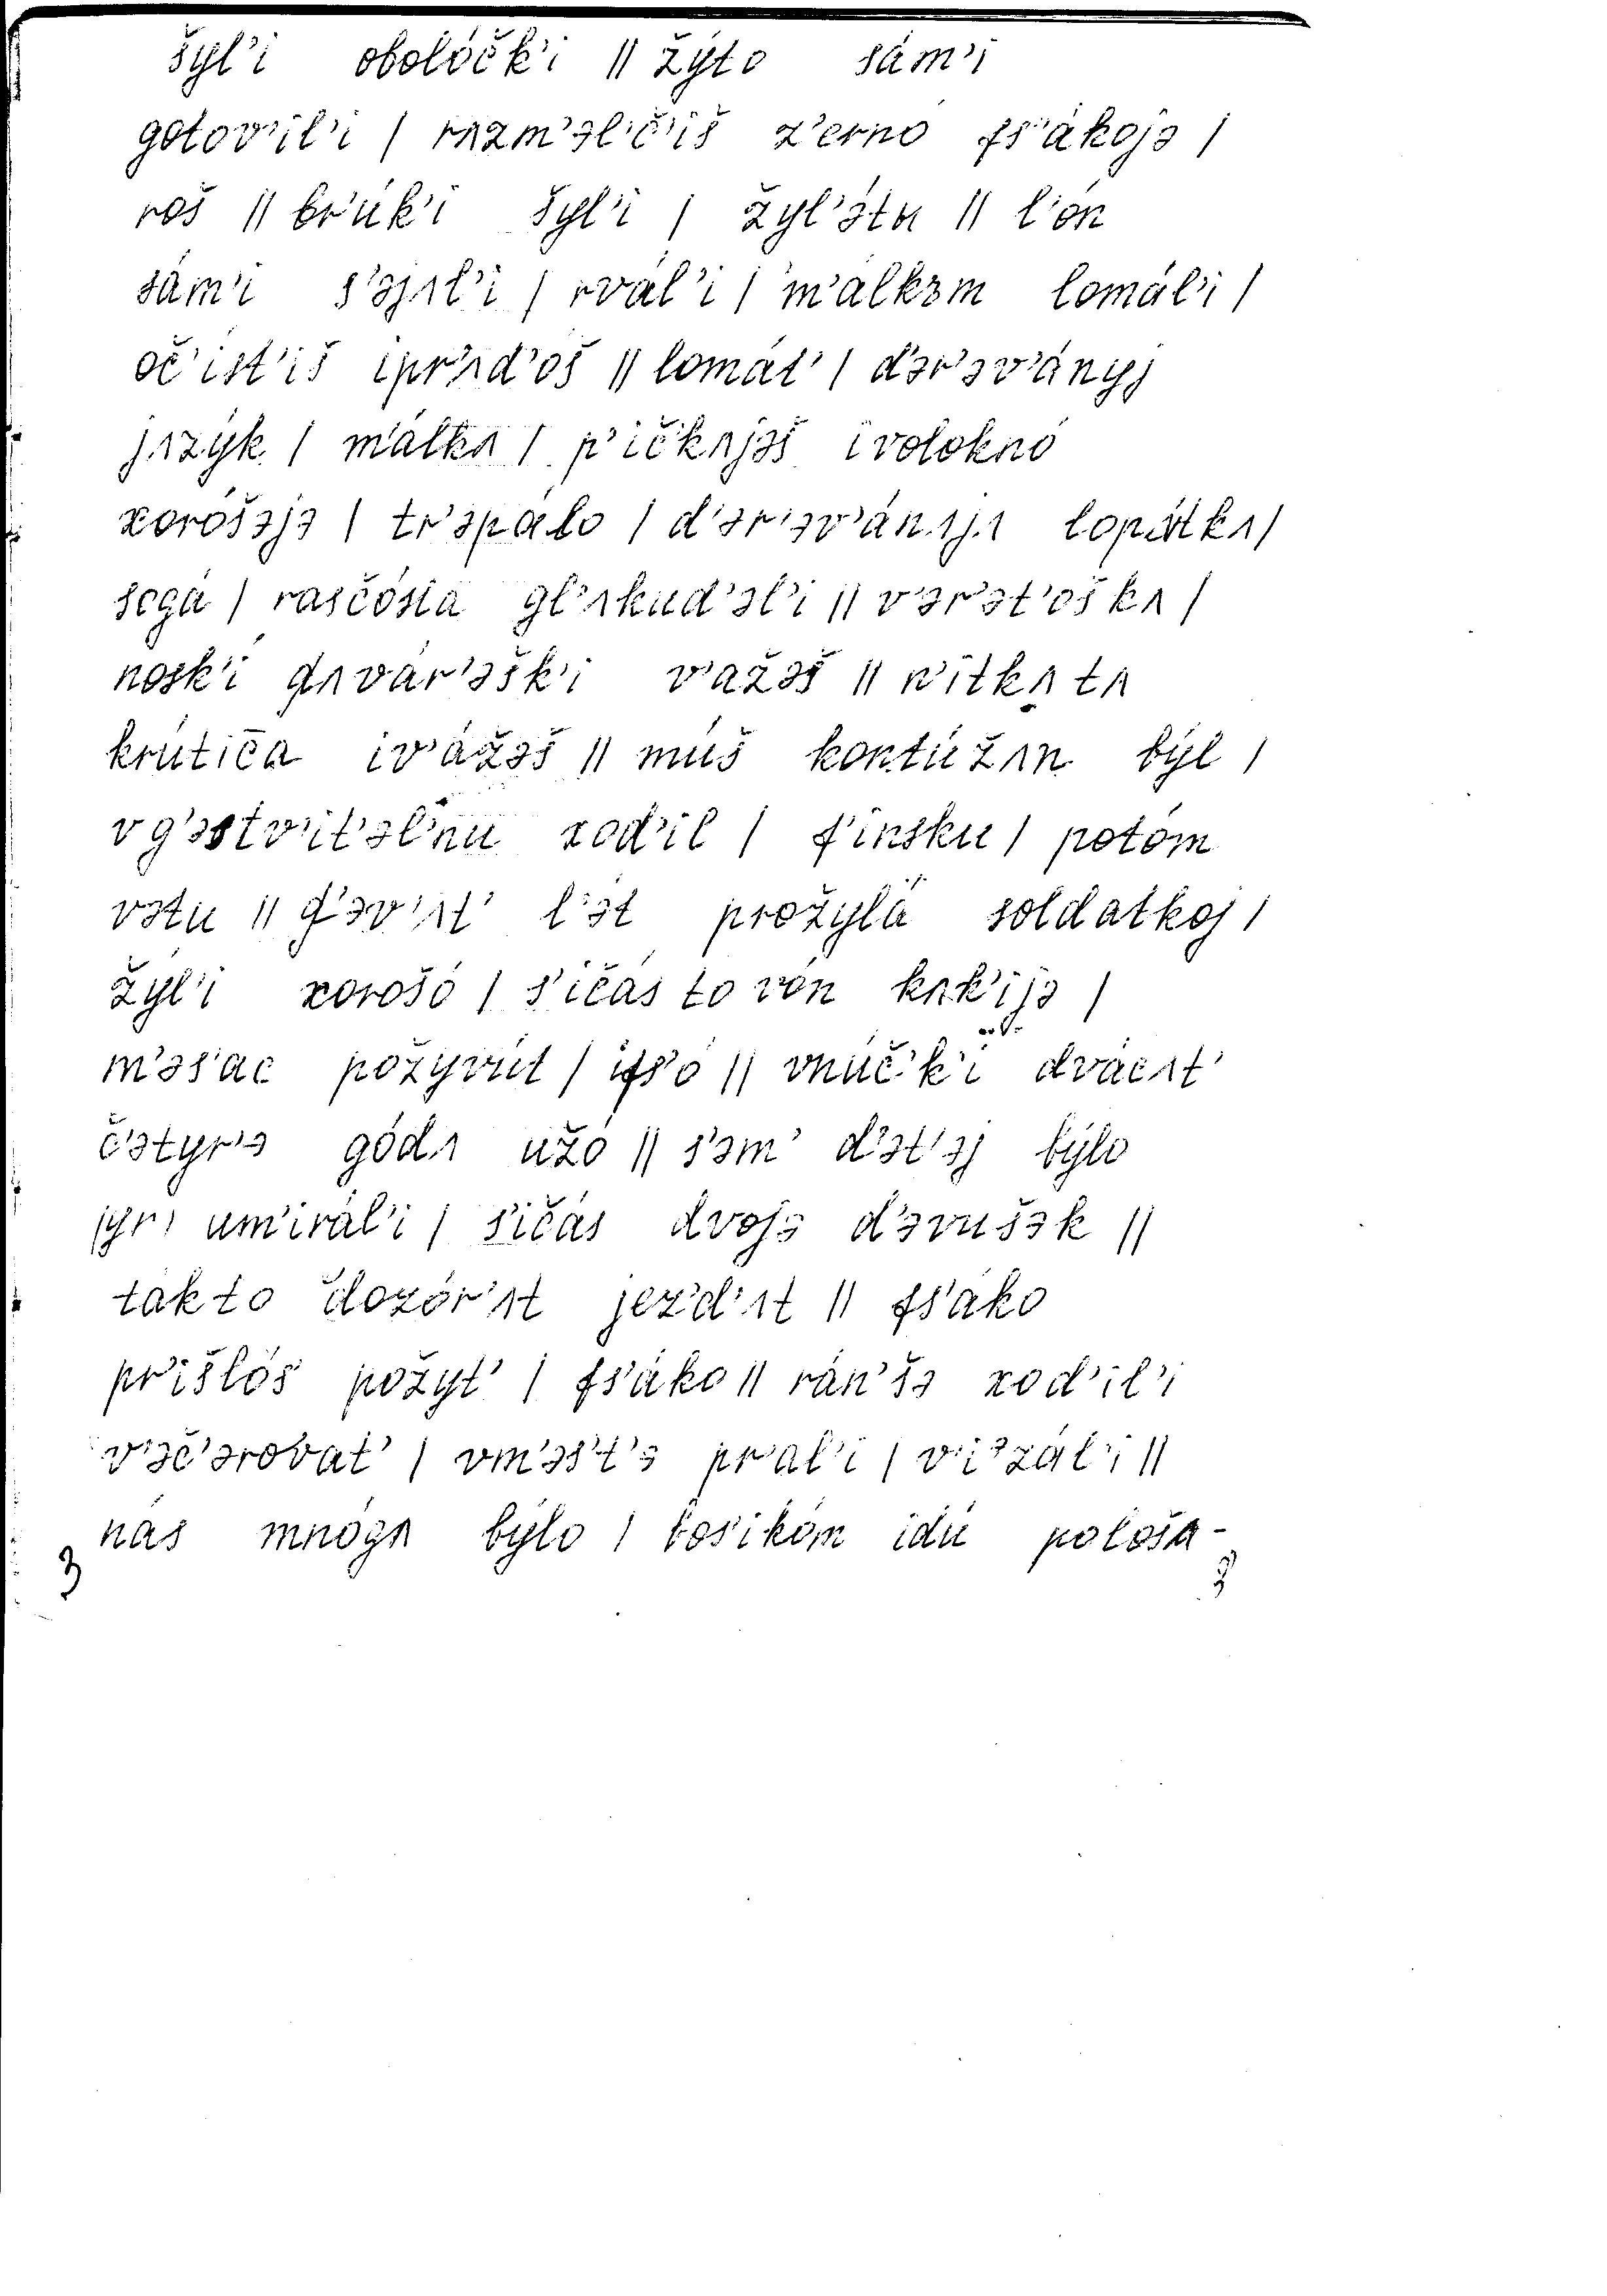 šyl’i obolóčk’i || žýto sám’i
gotov’íl’i | rʌzm’əl’č’iš z’ernó fs’ákojə |
roš || br’úk’i šyl’i | žyl’étu || l’ón
sám’i s’əjʌl’i | rvál’i | m’álkъm lomál’i |
oč’ist’iš ipr’ʌd’óš || lomát’ | d’ər’əv’ányj
jʌzýk | m’álkʌ | p’ičkʌjəš ivoloknó
xoróšəjə | tr’əpálo | d’ər’əv’ánʌjʌ lopátkʌ |
sogá | rasčósɨa gl’ʌkud’əl’i || v’ər’ət’óškʌ |
nosk’í dʌvár’əšk’i v’ážəš || n’ítkʌ tʌ
krútiča iv’ážəš || múš kontúžʌn býl |
vg’əstv’ít’əl’nu xod’íl | f’ínsku | potóm
vətu || d’év’ʌt’ l’ət prožylá soldatkoj |
žýl’i xorošó | s’ičás to vón kʌk’ijə |
m’əs’ac požyvút | ifs’ó || vnúč’k’i dvácʌt’
č’ətyr’ə gódʌ užó || s’əm’ d’ət’əj býlo
um’irál’i | s’ičás dvojə d’əvušək ||
tákto dozór’ʌt jez’d’ʌt || fs’áko
pr’išlós’ požyt’ | fs’áko || rán’šə xod’il’i
v’əč’ərovat’ | vm’əs’t’ə pr’al’i | v’iᵊzál’i ||
nás mnógʌ býlo | bos’ikóm idú pološa-
3 3